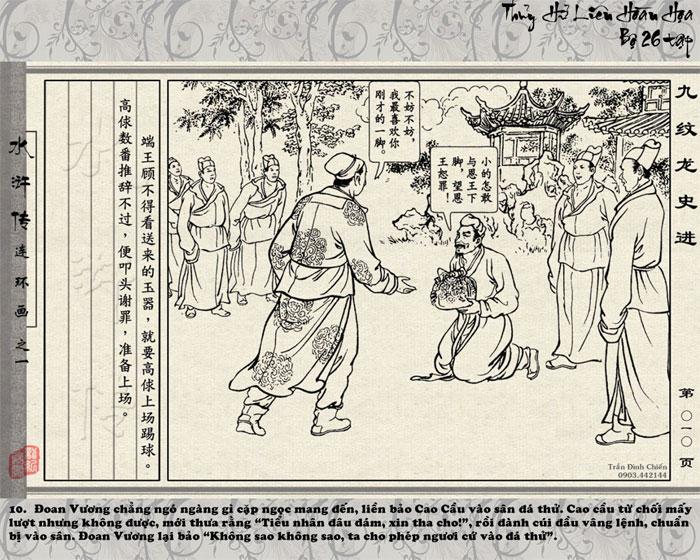 Thủy Hử Liên Hoàn Họa
Bộ 26 tập
九纹龙史进
不妨不妨，
我最喜欢你
刚才的一脚。
小的怎敢
与恩王下
脚，望恩
王恕罪！
端王顾不得看送来的玉器，就要高俅上场踢球。
高俅数番推辞不过，便叩头谢罪，准备上场。
水浒传连环画之一
第〇一〇页
Trần Đình Chiến
0903.442144
10. Đoan Vương chẳng ngó ngàng gì cặp ngọc mang đến, liền bảo Cao Cầu vào sân đá thử. Cao cầu từ chối mấy
lượt nhưng không được, mới thưa rằng “Tiểu nhân đâu dám, xin tha cho!”, rồi đành cúi đầu vâng lệnh, chuẩn
bị vào sân. Đoan Vương lại bảo “Không sao không sao, ta cho phép ngươi cứ vào đá thử”.